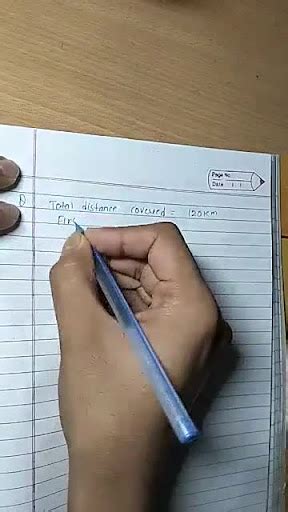 Page No.
Date / /
1) Total distance covered = 120 km
Firs